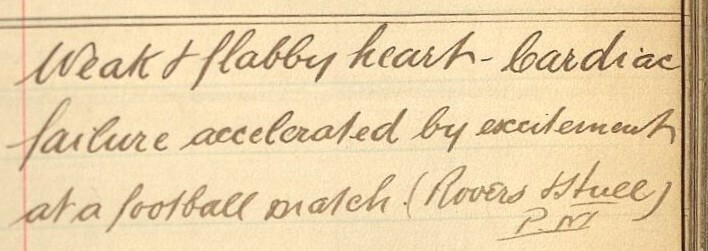 Weak & flabby heart - Cardiac
failure accelerated by excitement
at a football match. (Rovers & Hull)
P.M